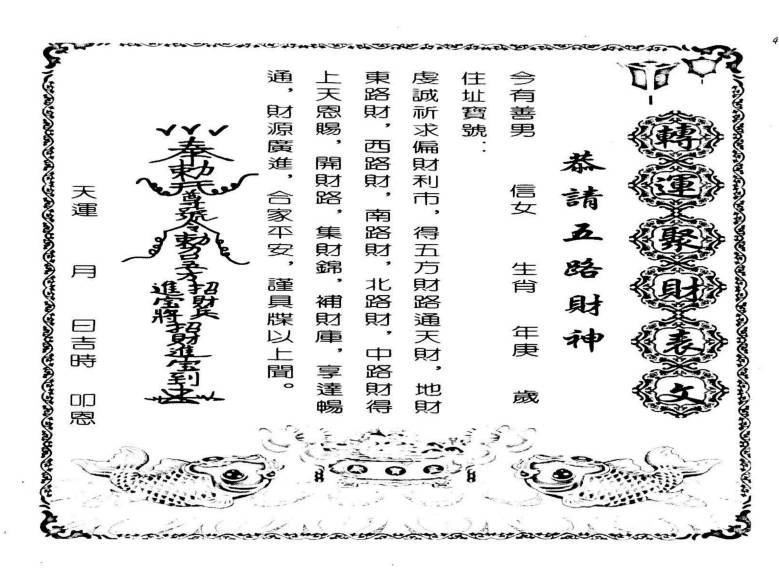 轉運聚財表文
恭請五路財神
今有善男 信女 生肖 年庚 歲
住址寶號：
虔誠祈求偏財利市，得五方財路通天財，地財
東路財，西路財，南路財，北路財，中路財得
上天恩賜，開財路，集財錦，補財庫，享達暢
通，財源廣進，合家平安，謹具牒以上聞。
奉勅
招財
進寶
招財進寶到
天運 月 日吉時 叩恩
4